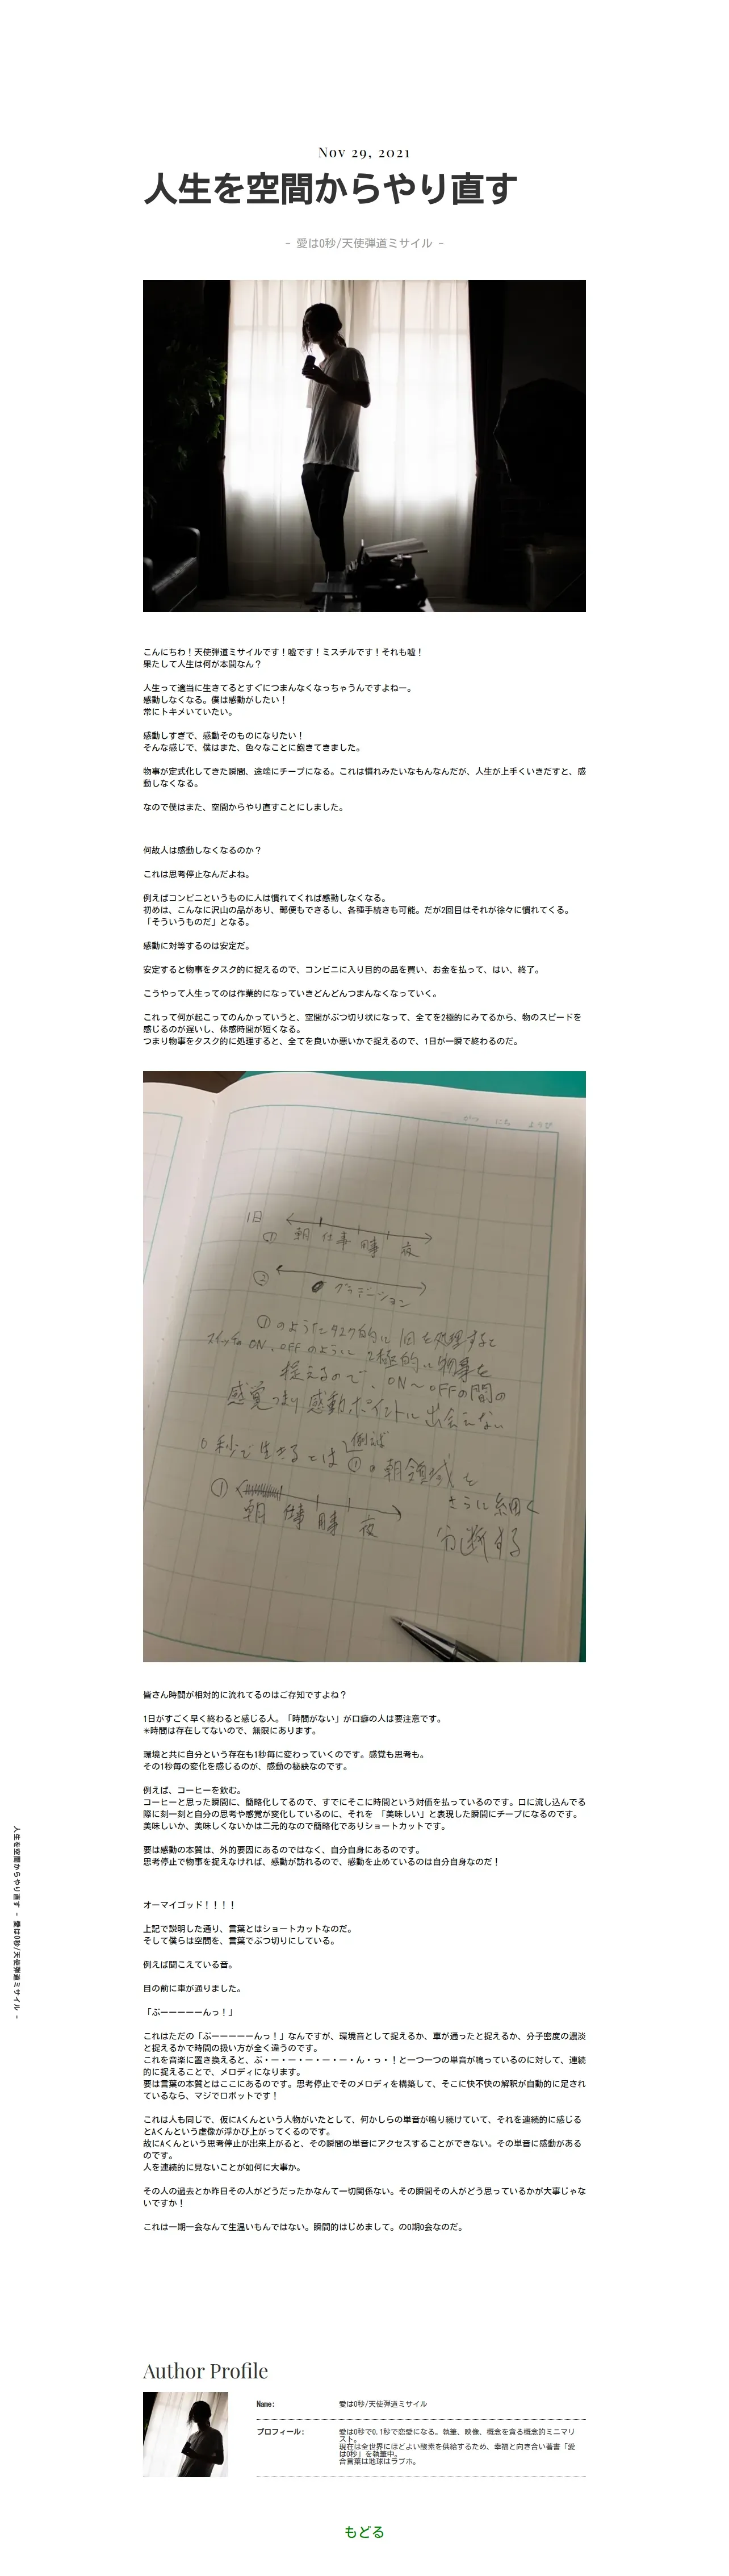 Nov 29, 2021
人生を空間からやり直す
- 愛は0秒/天使弾道ミサイル -
こんにちわ！天使弾道ミサイルです！嘘です！ミスチルです！それも嘘！
果たして人生は何が本間なん？
人生って適当に生きてるとすぐにつまんなくなっちゃうんですよねー。
感動しなくなる。僕は感動がしたい！
常にトキメいていたい。
感動しすぎで、感動そのものになりたい！
そんな感じで、僕はまた、色々なことに飽きてきました。
物事が定式化してきた瞬間、途端にチープになる。これは慣れみたいなもんなんだが、人生が上手くいきだすと、感
動しなくなる。
なので僕はまた、空間からやり直すことにしました。
何故人は感動しなくなるのか？
これは思考停止なんだよね。
例えばコンビニというものに人は慣れてくれば感動しなくなる。
初めは、こんなに沢山の品があり、郵便もできるし、各種手続きも可能。だが2回目はそれが徐々に慣れてくる。
「そういうものだ」となる。
感動に対等するのは安定だ。
安定すると物事をタスク的に捉えるので、コンビニに入り目的の品を買い、お金を払って、はい、終了。
こうやって人生ってのは作業的になっていきどんどんつまんなくなっていく。
これって何が起こってのんかっていうと、空間がぶつ切り状になって、全てを2極的にみてるから、物のスピードを
感じるのが遅いし、体感時間が短くなる。
つまり物事をタスク的に処理すると、全てを良いか悪いかで捉えるので、1日が一瞬で終わるのだ。
1日
① 朝 仕事 用事 夜
② グラデーション
①のようにタスク的に1日を処理すると
スイッチのON、OFFのように2極的に物事を
捉えるので、ON〜OFFの間の
感覚つまり感動ポイントに出会えない
0秒で生きるとは 例えば
①の朝領域を
さらに細く
分断する
① 朝 仕事 用事 夜
皆さん時間が相対的に流れてるのはご存知ですよね？
1日がすごく早く終わると感じる人。「時間がない」が口癖の人は要注意です。
*時間は存在してないので、無限にあります。
環境と共に自分という存在も1秒毎に変わっていくのです。感覚も思考も。
その1秒毎の変化を感じるのが、感動の秘訣なのです。
例えば、コーヒーを飲む。
コーヒーと思った瞬間に、簡略化してるので、すでにそこに時間という対価を払っているのです。口に流し込んでる
際に刻一刻と自分の思考や感覚が変化しているのに、それを 「美味しい」と表現した瞬間にチープになるのです。
美味しいか、美味しくないかは二元的なので簡略化でありショートカットです。
要は感動の本質は、外的要因にあるのではなく、自分自身にあるのです。
思考停止で物事を捉えなければ、感動が訪れるので、感動を止めているのは自分自身なのだ！
オーマイゴッド！！！！
上記で説明した通り、言葉とはショートカットなのだ。
そして僕らは空間を、言葉でぶつ切りにしている。
例えば聞こえている音。
目の前に車が通りました。
「ぶーーーーーんっ！」
これはただの「ぶーーーーーんっ！」なんですが、環境音として捉えるか、車が通ったと捉えるか、分子密度の濃淡
と捉えるかで時間の扱い方が全く違うのです。
これを音楽に置き換えると、ぶ・ー・ー・ー・ー・ー・ん・っ・！と一つ一つの単音が鳴っているのに対して、連続
的に捉えることで、メロディになります。
要は言葉の本質とはここにあるのです。思考停止でそのメロディを構築して、そこに快不快の解釈が自動的に足され
ているなら、マジでロボットです！
これは人も同じで、仮にAくんという人物がいたとして、何かしらの単音が鳴り続けていて、それを連続的に感じる
とAくんという虚像が浮かび上がってくるのです。
故にAくんという思考停止が出来上がると、その瞬間の単音にアクセスすることができない。その単音に感動がある
のです。
人を連続的に見ないことが如何に大事か。
その人の過去とか昨日その人がどうだったかなんて一切関係ない。その瞬間その人がどう思っているかが大事じゃな
いですか！
これは一期一会なんて生温いもんではない。瞬間的はじめまして。の0期0会なのだ。
人生を空間からやり直す - 愛は0秒/天使弾道ミサイル -
Author Profile
Name: 愛は0秒/天使弾道ミサイル
プロフィール: 愛は0秒で0.1秒で恋愛になる。執筆、映像、概念を貪る概念的ミニマリ
スト。
現在は全世界にほどよい酸素を供給するため、幸福と向き合い著書「愛
は0秒」を執筆中。
合言葉は地球はラブホ。
もどる